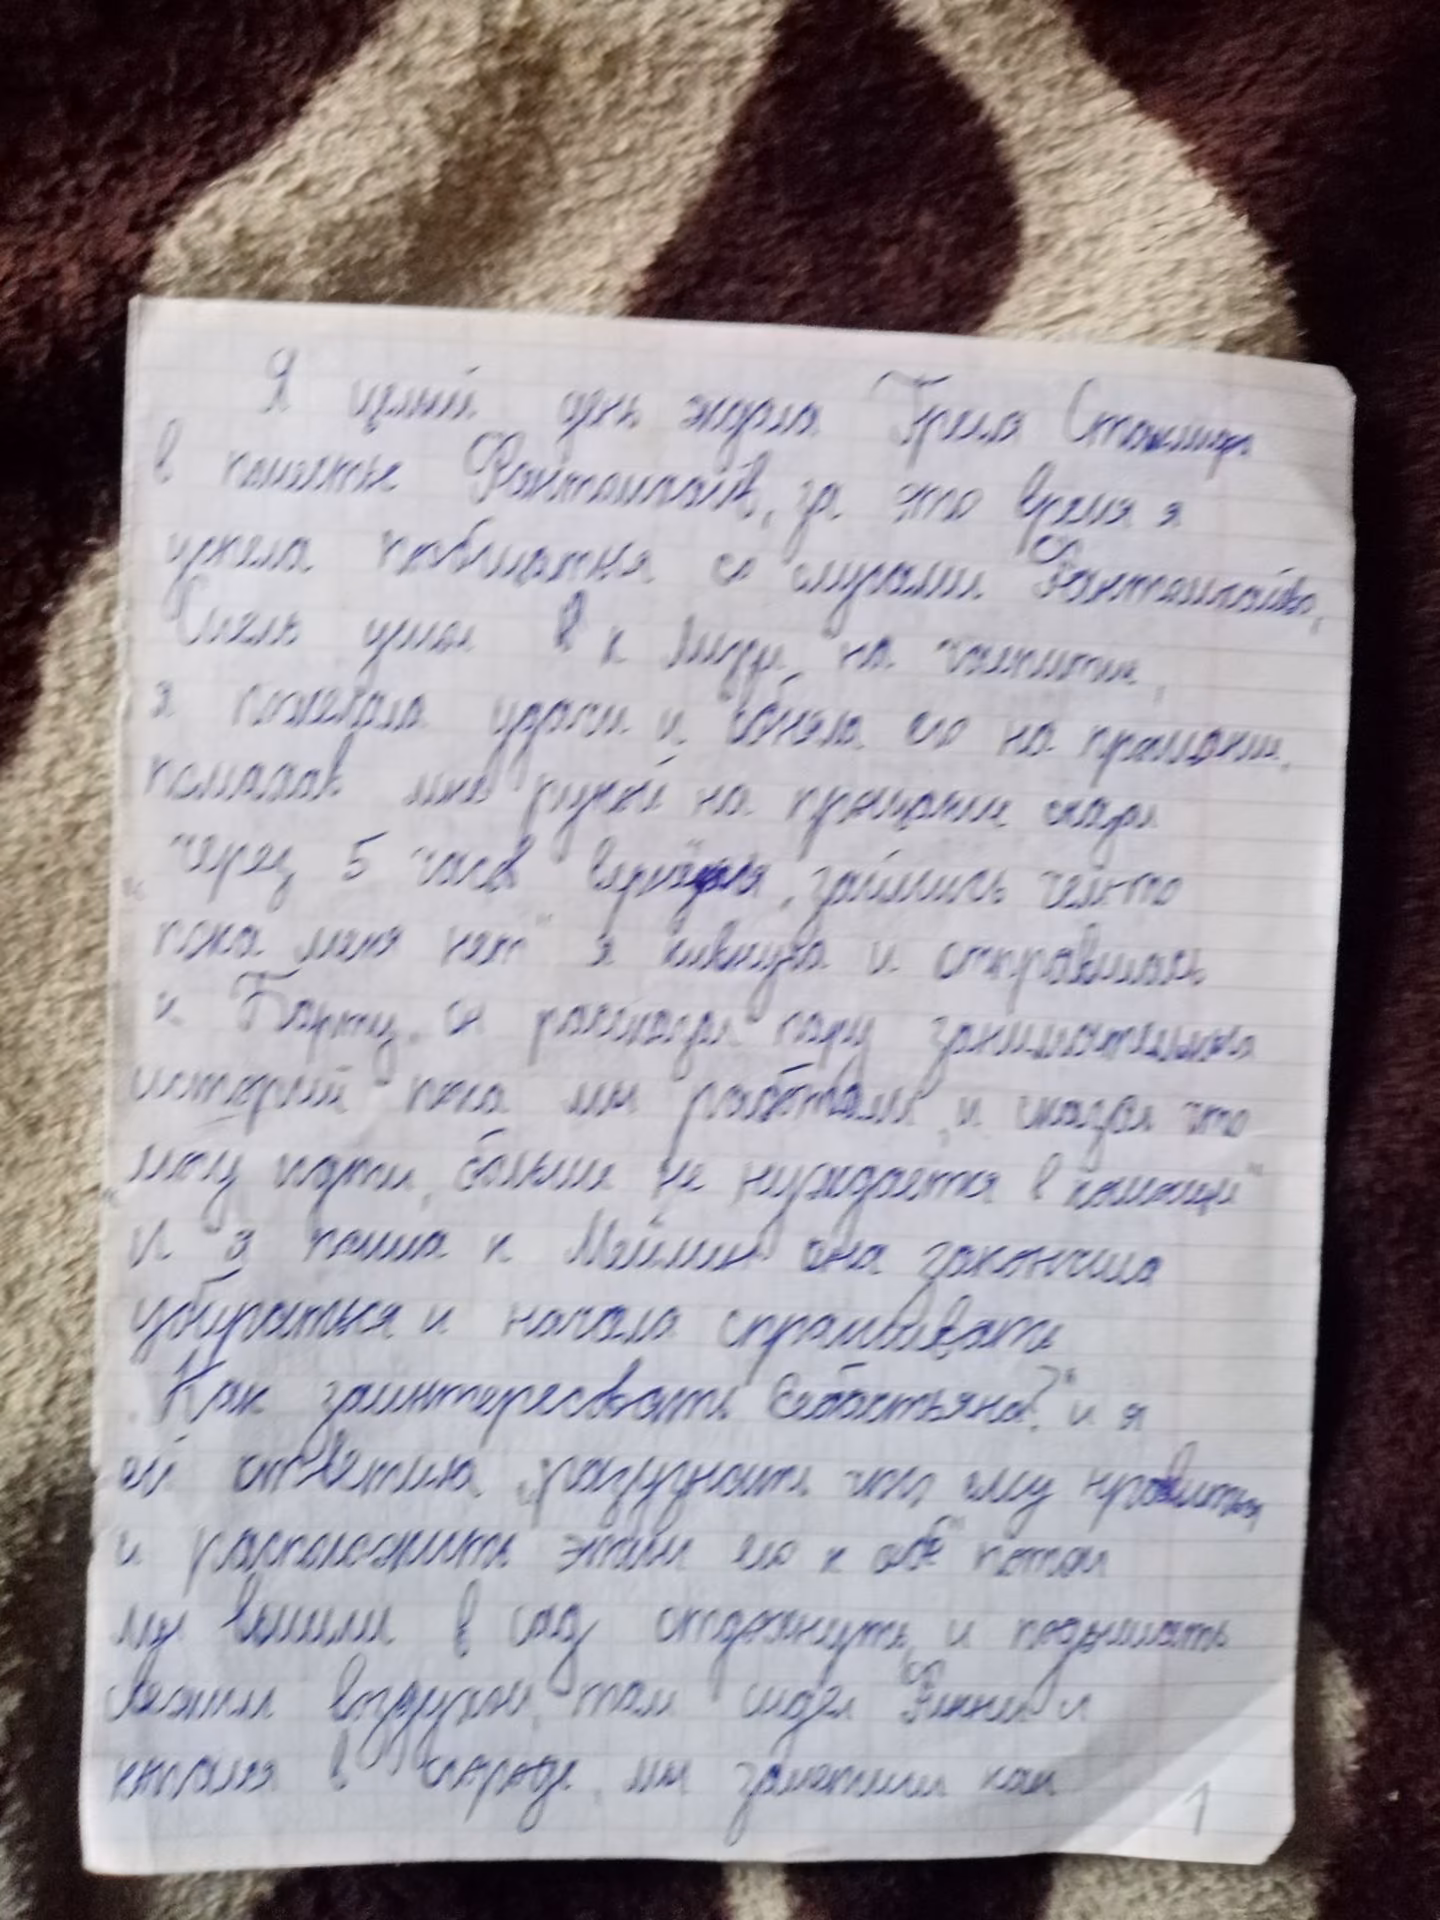 Я целый день ждала Грелля Сатклифф
в поместье Фантомхайв, за это время я
успела пообщаться со слугами Фантомхайва,
Сиель ушел к Лиззи, на чаепитие,
я пожелала удачи и обняла его на прощание,
помахав мне рукой на прощание сказал
"через 5 часов вернёмся, займись чем-то
пока меня нет" я кивнула и отправилась
к Барту, он рассказал пару занимательных
историй пока мы работали, и сказал что
"могу идти, больше не нуждается в помощи"
И я пошла к Мейлин она закончила
убираться и начала спрашивать
"Как заинтересовать Себастьяна?" и я
ей ответила "разузнать что ему нравится,
и расположить этим его к себе" потом
мы вышли в сад отдохнуть, и подышать
свежим воздухом, там сидел Финни и
копался в огороде, мы заметили как
1